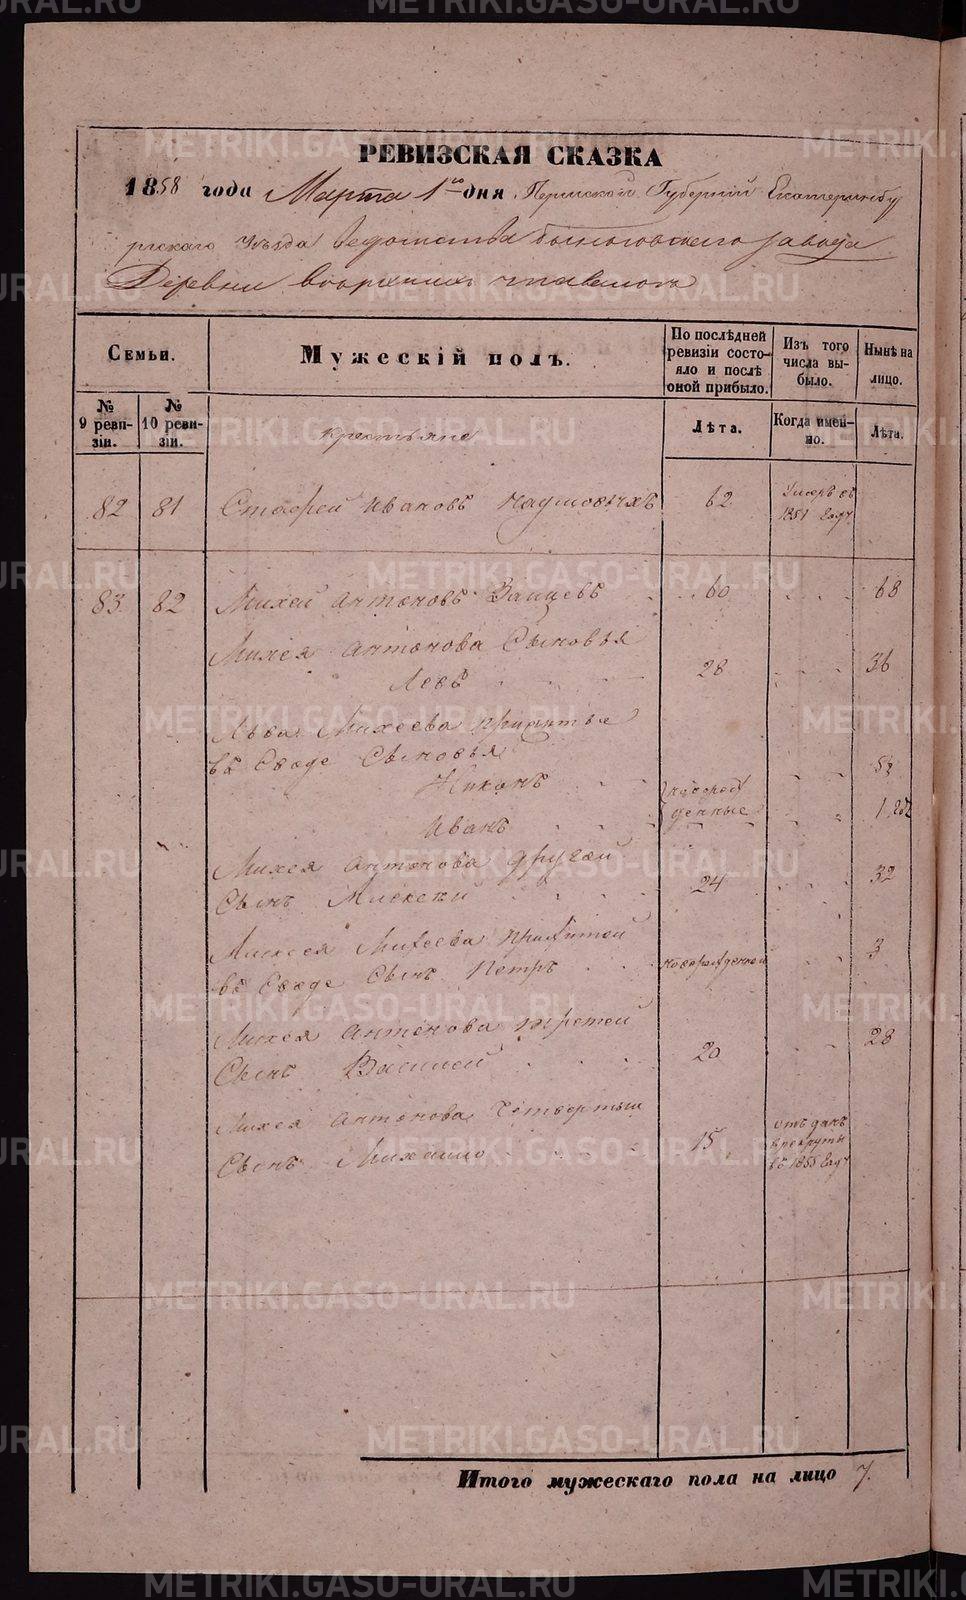 РЕВИЗСКАЯ СКАЗКА
1858 года Марта 1го дня Пермской Губерніи Екатеринбу
ргскаго Уѣзда ведомства Быньговскаго завода
Деревни
Семьи.
Мужескій полъ.
По послѣдней ревизіи состояло и послѣ оной прибыло.
Изъ того числа выбыло.
Нынѣ на лицо.
№ 9 ревизіи.
№ 10 ревизіи.
Крестьяне
Лѣта.
Когда именно.
Лѣта.
82 81 Ивановъ 62 Умеръ въ 1851 году
83 82 Михей Антоновъ Зайцевъ 60 68
Михея Антонова Сыновья
Левъ 28 36
Льва Михеева
въ Сыновья
Никонъ новорож 5½
Иванъ денные 1 годъ
Михея Антонова другой
Сынъ 24 32
Михеева
въ Сынъ Петръ новорожденной 3
Михея Антонова третей
Сынъ Василей 20 28
Михея Антонова Четвертый
Сынъ Михайло 15 отъданъ в рекруты въ 1855 году
Итого мужескаго пола на лицо 7.
METRIKI.GASO-URAL.RU